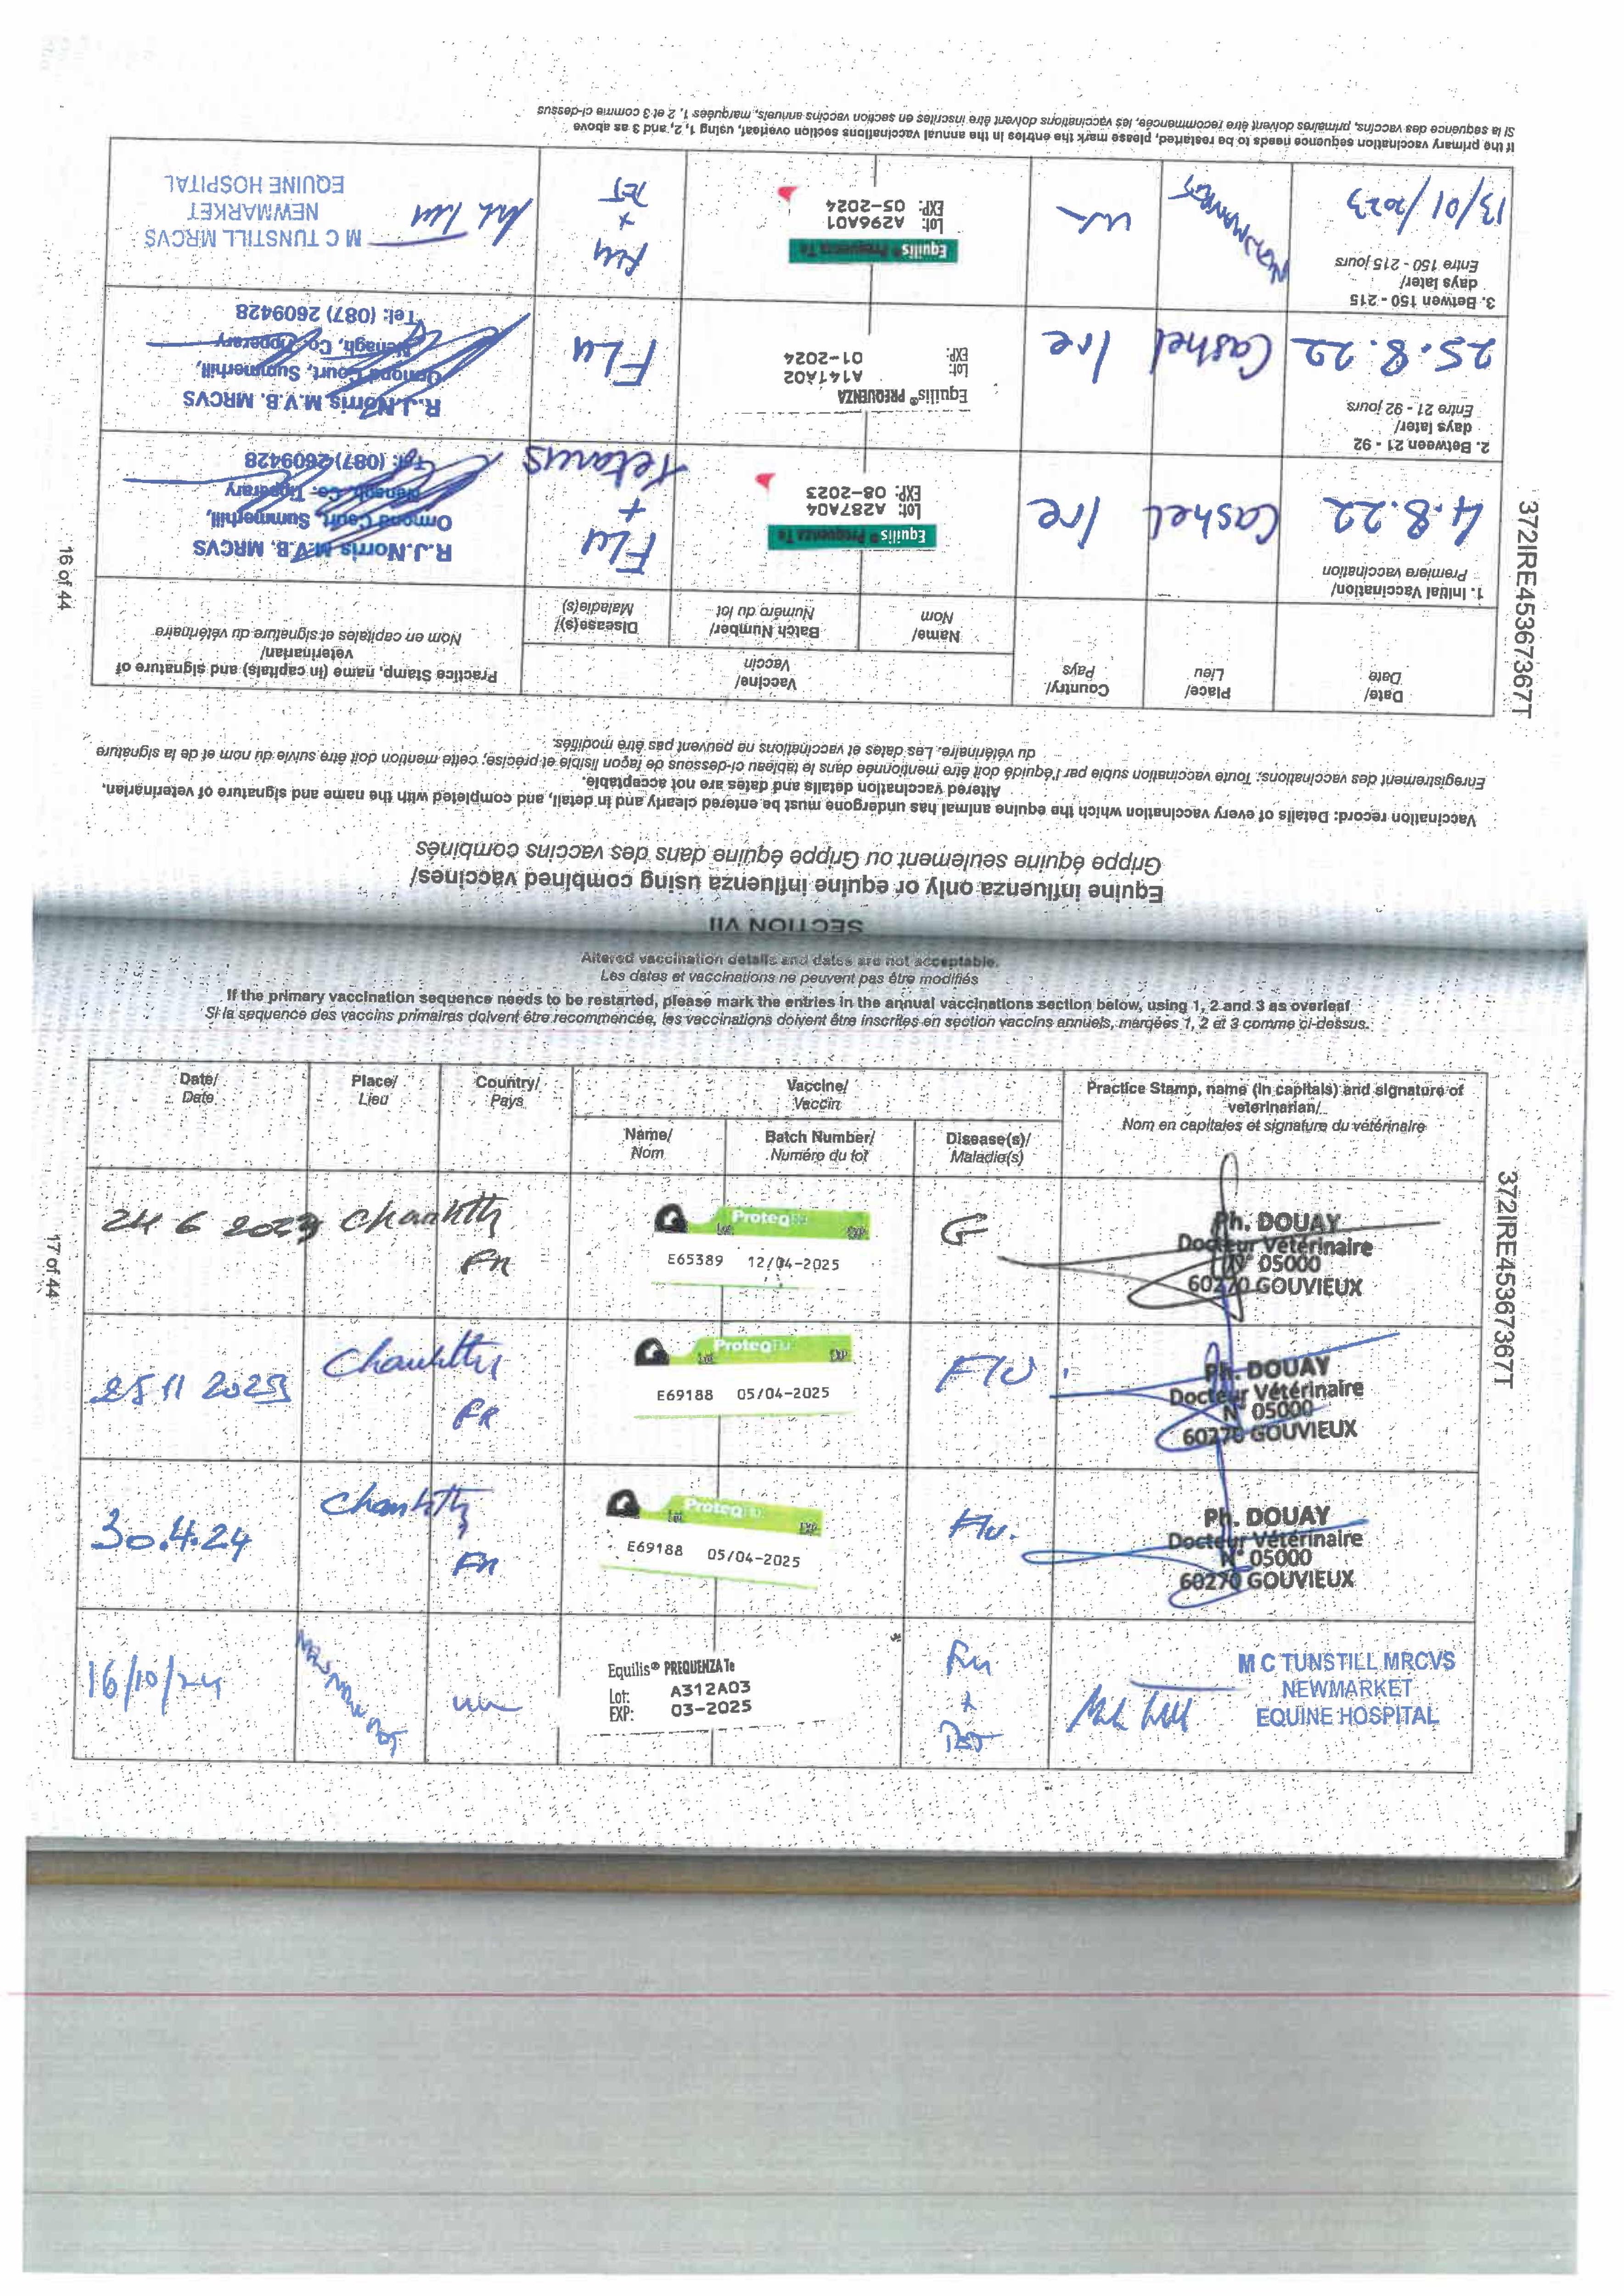 SECTION VII
Equine influenza only or equine influenza using combined vaccines/
Grippe équine seulement ou Grippe équine dans des vaccins combinés
Vaccination record: Details of every vaccination which the equine animal has undergone must be entered clearly and in detail, and completed with the name and signature of veterinarian.
Altered vaccination details and dates are not acceptable.
Enregistrement des vaccinations: Toute vaccination subie par l'équidé doit être mentionnée dans le tableau ci-dessous de façon lisible et précise; cette mention doit être suivie du nom et de la signature
du vétérinaire. Les dates et vaccinations ne peuvent pas être modifiés.
Date/
Date
Place/
Lieu
Country/
Pays
Vaccine/
Vaccin
Name/
Nom
Batch Number/
Numéro du lot
Disease(s)/
Maladie(s)
Practice Stamp, name (in capitals) and signature of
veterinarian/
Nom en capitales et signature du vétérinaire
1. Initial Vaccination/
Premiere vaccination
4.8.22
Cashel
Ire
Equilis® Prequenza Te
Lot: A287A04
EXP: 08-2023
Flu
+
Tetanus
R.J.Norris M.V.B. MRCVS
Ormond Court, Summerhill,
Nenagh, Co. Tipperary
Tel: (087) 2609428
2. Between 21 - 92
days later/
Entre 21 - 92 jours
25.8.22
Cashel
Ire
Equilis® PREQUENZA
Lot: A141A02
EXP: 01-2024
FLu
R.J.Norris M.V.B. MRCVS
Ormond Court, Summerhill,
Nenagh, Co. Tipperary
Tel: (087) 2609428
3. Betwen 150 - 215
days later/
Entre 150 - 215 jours
13/01/2023
Newmarket
UK
Equilis® Prequenza Te
Lot: A296A01
EXP: 05-2024
Flu
+
TET
M C TUNSTILL MRCVS
NEWMARKET
EQUINE HOSPITAL
If the primary vaccination sequence needs to be restarted, please mark the entries in the annual vaccinations section overleaf, using 1, 2, and 3 as above
Si la séquence des vaccins, primaires doivent être recommencée, les vaccinations doivent être inscrites en section vaccins annuels, marquées 1, 2 et 3 comme ci-dessus
16 of 44
372IRE45367367T
Altered vaccination details and dates are not acceptable.
Les dates et vaccinations ne peuvent pas être modifiés
If the primary vaccination sequence needs to be restarted, please mark the entries in the annual vaccinations section below, using 1, 2 and 3 as overleaf
Si la sequence des vaccins primaires doivent être recommencée, les vaccinations doivent être inscrites en section vaccins annuels, marqées 1, 2 et 3 comme ci-dessus.
Date/
Date
Place/
Lieu
Country/
Pays
Vaccine/
Vaccin
Name/
Nom
Batch Number/
Numéro du lot
Disease(s)/
Maladie(s)
Practice Stamp, name (in capitals) and signature of
veterinarian/
Nom en capitales et signature du vétérinaire
24 6 2023
Chantilly
FR
ProteqFlu
Lot EXP
E65389 12/04-2025
G
Ph. DOUAY
Docteur Vétérinaire
N° 05000
60270 GOUVIEUX
25 11 2023
Chantilly
FR
ProteqFlu
Lot EXP
E69188 05/04-2025
Flu.
Ph. DOUAY
Docteur Vétérinaire
N° 05000
60270 GOUVIEUX
30.4.24
Chantilly
FR
ProteqFlu
Lot EXP
E69188 05/04-2025
Flu.
Ph. DOUAY
Docteur Vétérinaire
N° 05000
60270 GOUVIEUX
16/10/24
Newmarket
UK
Equilis® PREQUENZA Te
Lot: A312A03
EXP: 03-2025
Flu
+
TET
M C TUNSTILL MRCVS
NEWMARKET
EQUINE HOSPITAL
17 of 44
372IRE45367367T